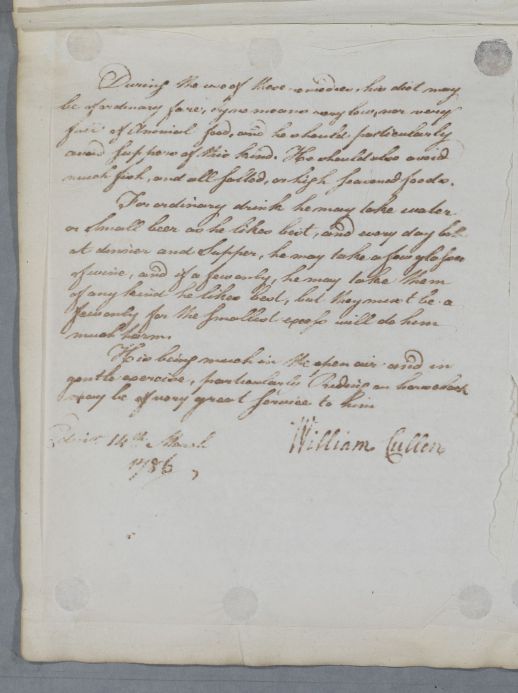 During the use of these remedies, his diet may
be of ordinary fare, by no means very low, nor very
full of Animal food, and he should particularly
avoid Suppers of this kind. He should also avoid
much fish, and all salted, or high seasoned foods.
For ordinary drink he may take water
or small beer as he likes best, and every day both
at dinner and Supper, he may take a few glasses
of wine, and if a few only, he may take them
of any kind he likes best, but they must be a
few only for the smallest excess will do him
much harm.
His being much in the open air and in
gentle exercise, particularly Riding on horseback
may be of very great service to him
Edinr 14th March
1786,
William Cullen